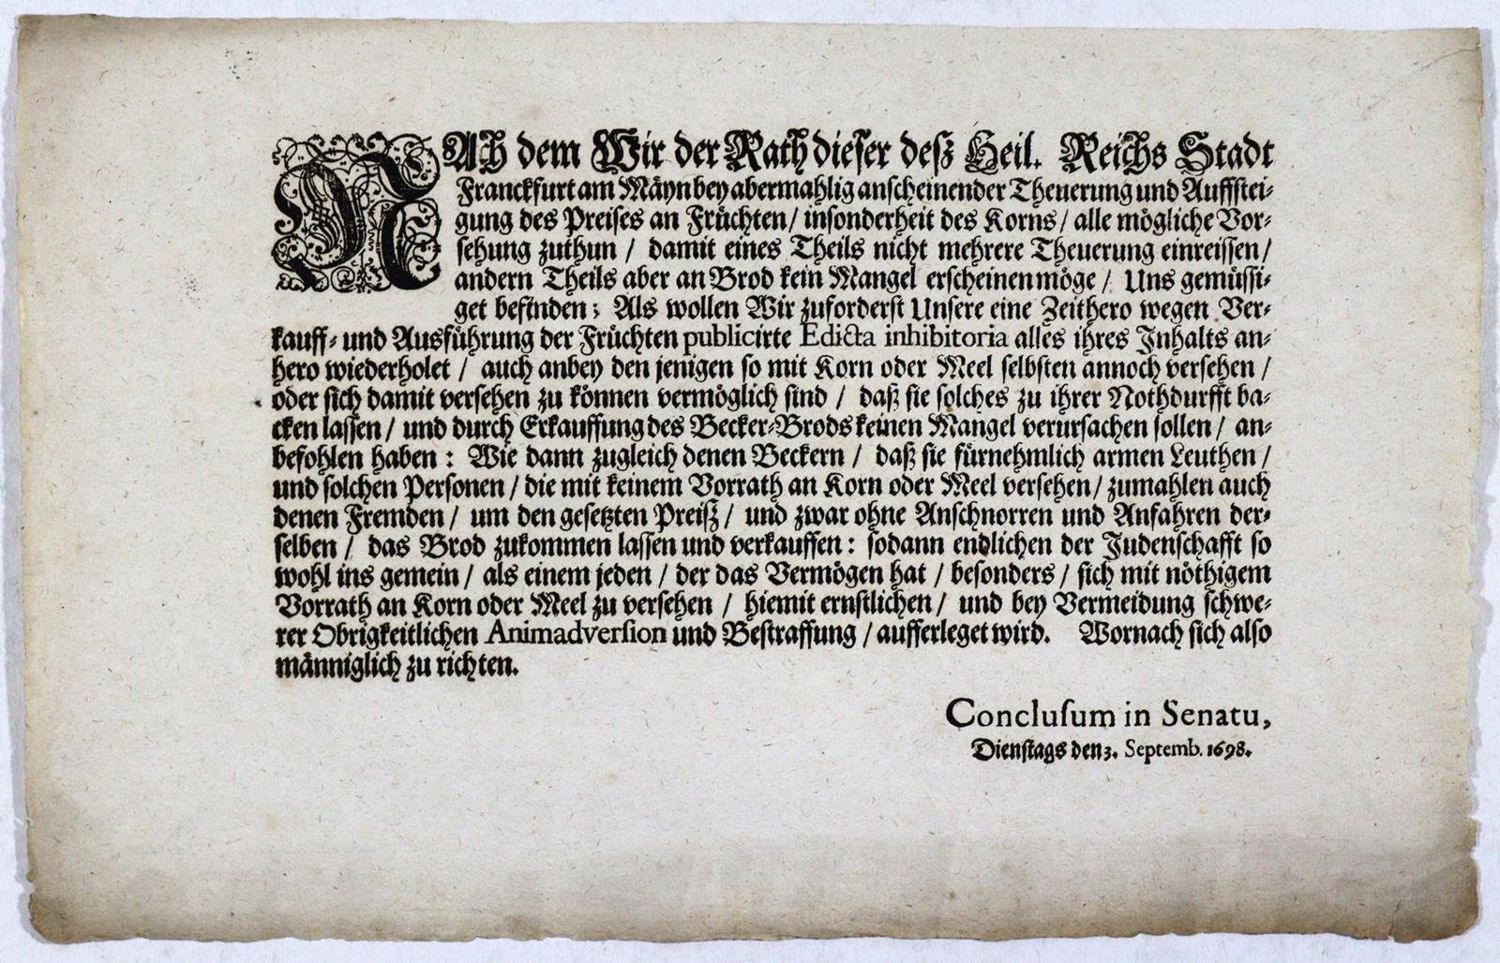 NAch dem Wir der Rath dieser deß Heil. Reichs Stadt
Franckfurt am Mäyn bey abermahlig anscheinender Theuerung und Auffstei-
gung des Preises an Früchten / insonderheit des Korns / alle mögliche Vor-
sehung zuthun / damit eines Theils nicht mehrere Theuerung einreissen /
andern Theils aber an Brod kein Mangel erscheinen möge / Uns gemüssi-
get befinden; Als wollen Wir zuforderst Unsere eine Zeithero wegen Ver-
kauff- und Ausführung der Früchten publicirte Edicta inhibitoria alles ihres Inhalts an-
hero wiederholet / auch anbey den jenigen so mit Korn oder Meel selbsten annoch versehen /
oder sich damit versehen zu können vermöglich sind / daß sie solches zu ihrer Nothdurfft ba-
cken lassen / und durch Erkauffung des Becker-Brods keinen Mangel verursachen sollen / an-
befohlen haben: Wie dann zugleich denen Beckern / daß sie fürnehmlich armen Leuthen /
und solchen Personen / die mit keinem Vorrath an Korn oder Meel versehen / zumahlen auch
denen Fremden / um den gesetzten Preiß / und zwar ohne Anschnorren und Anfahren der-
selben / das Brod zukommen lassen und verkauffen: sodann endlichen der Judenschafft so
wohl ins gemein / als einem jeden / der das Vermögen hat / besonders / sich mit nöthigem
Vorrath an Korn oder Meel zu versehen / hiemit ernstlichen / und bey Vermeidung schwe-
rer Obrigkeitlichen Animadversion und Bestraffung / aufferleget wird. Wornach sich also
männiglich zu richten.
Conclusum in Senatu,
Dienstags den 3. Septemb. 1698.